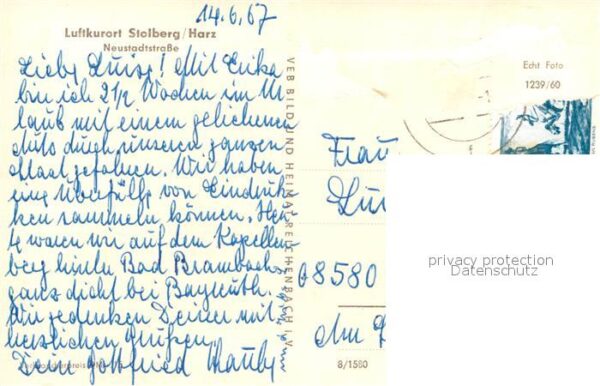 14.6.67
Luftkurort Stolberg/Harz
Neustadtstraße
Liebe Luise! Mit Erika
bin ich 2 1/2 Wochen im Ur
laub mit einem geliehenen
Auto durch unseren ganzen
Staat gefahren. Wir haben
eine Überfülle von Eindrük-
ken sammeln können. Heu
te waren wir auf dem Kapellen
berg hinter Bad Brambach
ganz dicht bei Bayreuth.
Wir gedenken Deiner mit
herzlichen Grüßen
Dein Gottfried
VEB BILD UND HEIMAT REICHENBACH I. V.
Echt Foto
1239/60
Frau
Lui
08580
Am
8/1580
privacy protection
Datenschutz